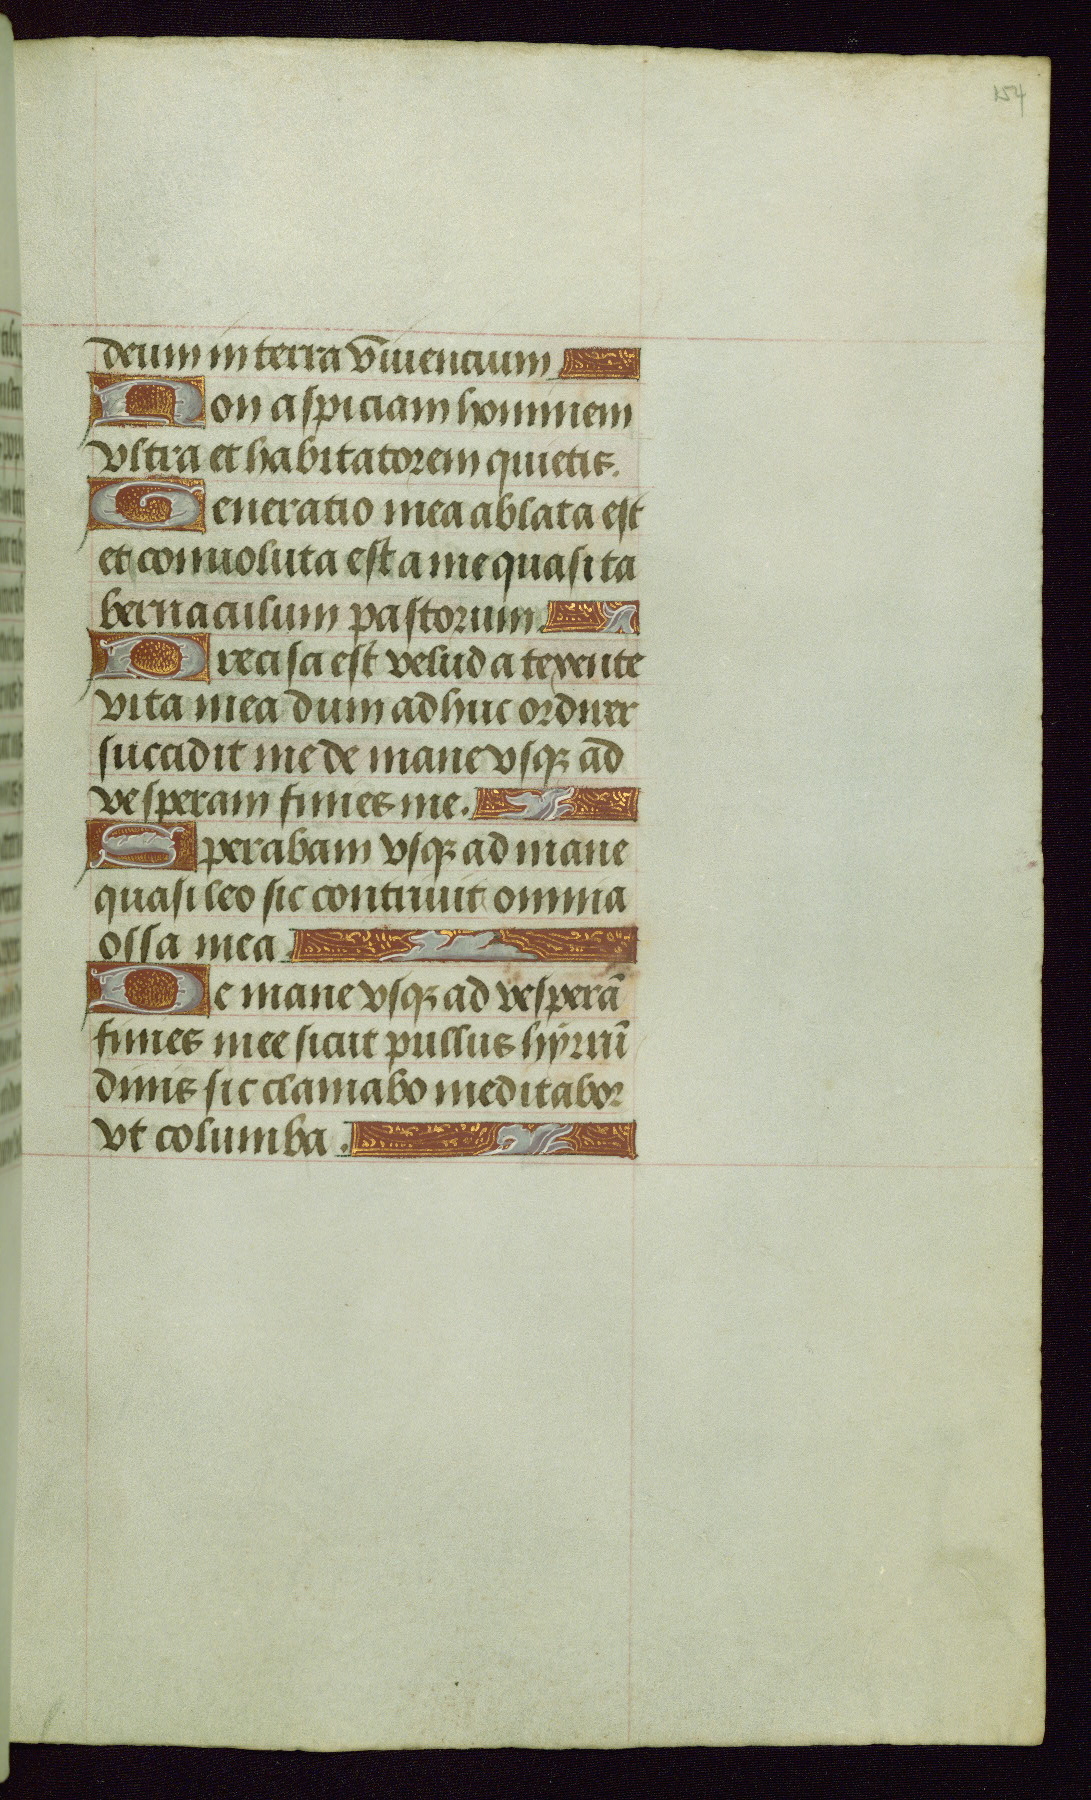 154
deum in terra viventium
Non aspiciam hominem
vltra et habitatorem quietis.
Generatio mea ablata est
et convoluta est a me quasi ta
bernaculum pastorum.
Precisa est velud a texente
vita mea dum adhuc ordirer
succidit me de mane vsqȝ ad
vesperam finies me.
Sperabam vsqȝ ad mane
quasi leo sic contrivit omnia
ossa mea.
De mane vsqȝ ad vesperā
finies mee sicut pullus hÿrūī
dinis sic clamabo meditabor
vt columba.